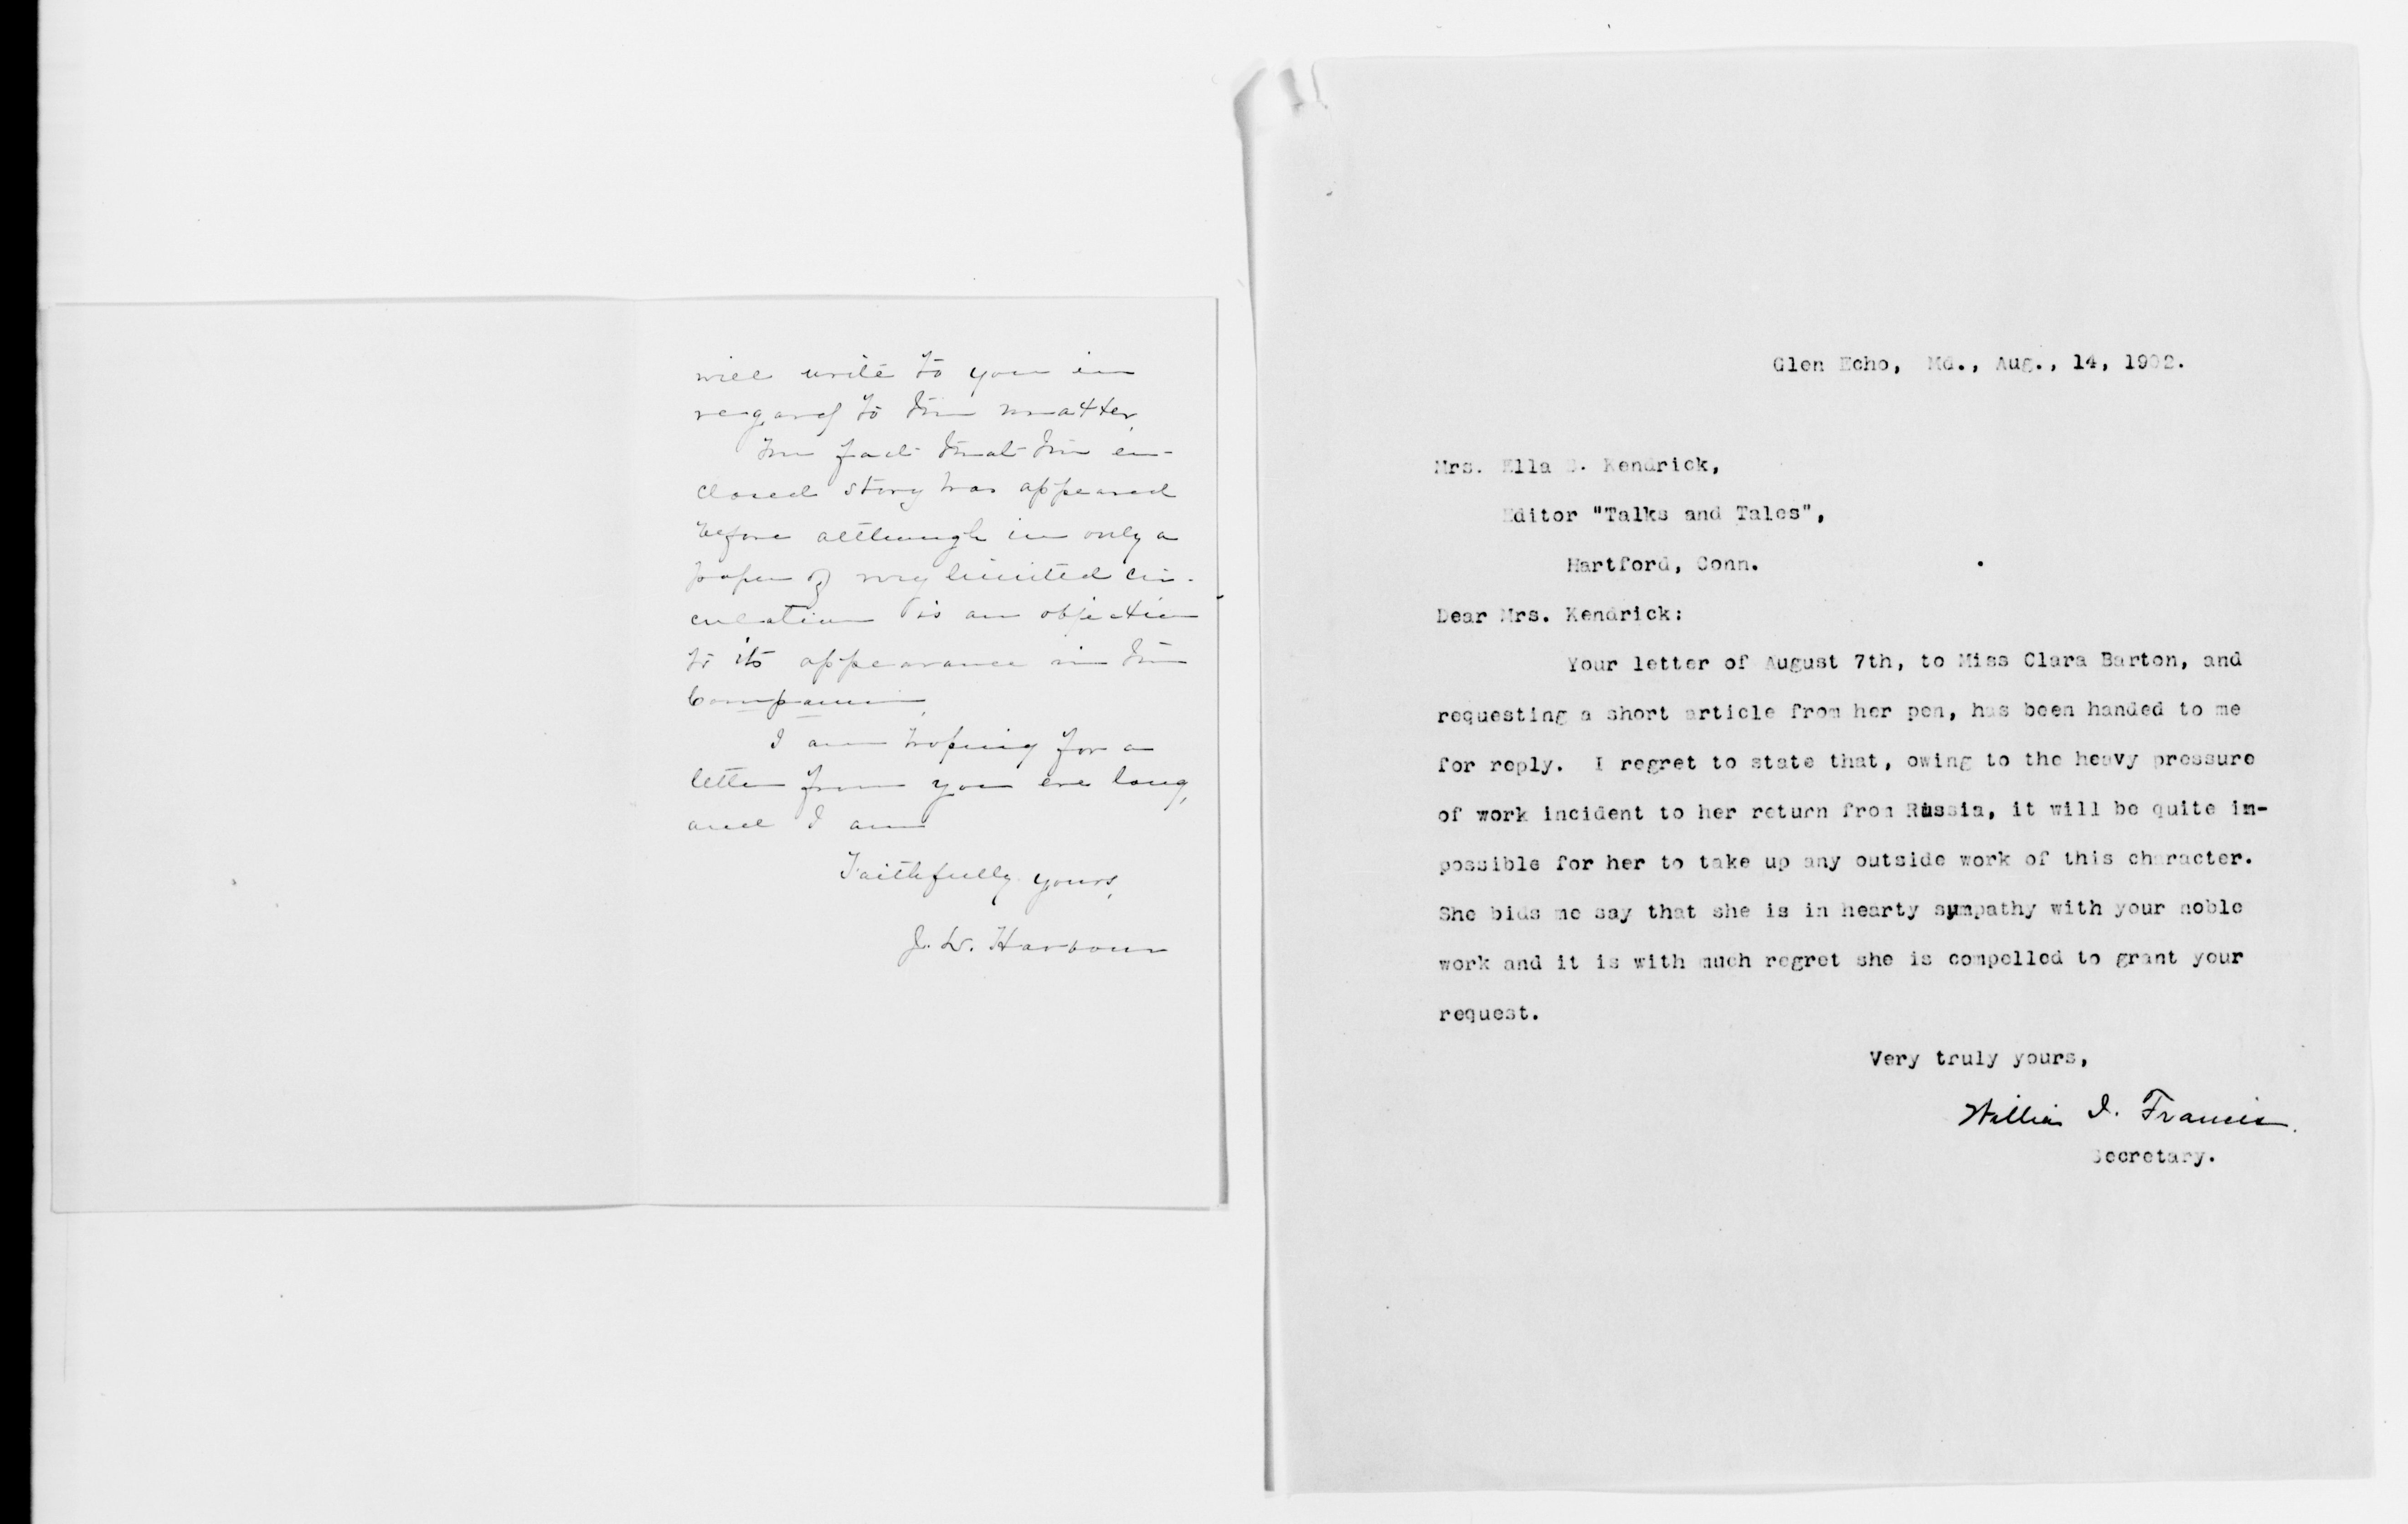 will write to you in
regard to the matter.
The fact that the en-
closed story has appeared
before although in only a
paper of very limited cir-
culation is an objection
to its appearance in the
Companion.
I am hoping for a
letter from you ere long,
and I am
Faithfully yours,
J. L. Harbour
Glen Echo, Md., Aug., 14, 1902.
Mrs. Ella B. Kendrick,
Editor "Talks and Tales",
Hartford, Conn.
Dear Mrs. Kendrick:
Your letter of August 7th, to Miss Clara Barton, and
requesting a short article from her pen, has been handed to me
for reply. I regret to state that, owing to the heavy pressure
of work incident to her return from Russia, it will be quite im-
possible for her to take up any outside work of this character.
She bids me say that she is in hearty sympathy with your noble
work and it is with much regret she is compelled to grant your
request.
Very truly yours,
William I. Francis.
Secretary.